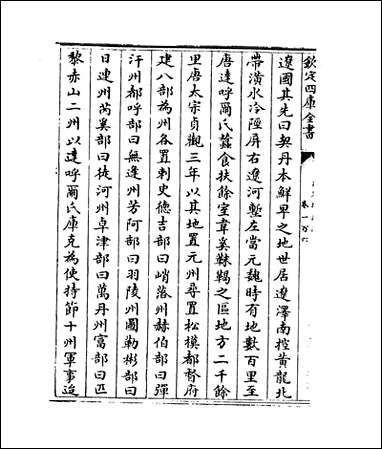 欽定四庫全書
卷一百六
遼國其先曰契丹本鮮卑之地世居遼澤南控黃龍北
帶潢水冷陘屏右遼河塹左當元魏時有地數百里至
唐達呼爾氏蠶食扶餘室韋奚靺鞨之區地方二千餘
里唐太宗貞觀三年以其地置元州尋置松模都督府
建八部為州各置刺史德吉部曰峭落州赫伯部曰彈
汗州都呼部曰無逢州芳阿部曰羽陵州圖勒彬部曰
日連州芮奚部曰徒河州卓津部曰萬丹州富部曰匹
黎赤山二州以達呼爾氏庫克為使持節十州軍事逡